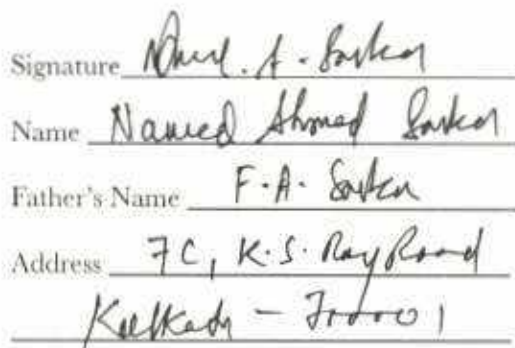 Signature A. Sarkar
Name Ahmed Sarkar
Father's Name F. A. Sarkar
Address 7C, K. S. Ray Road
Kolkata - 700001